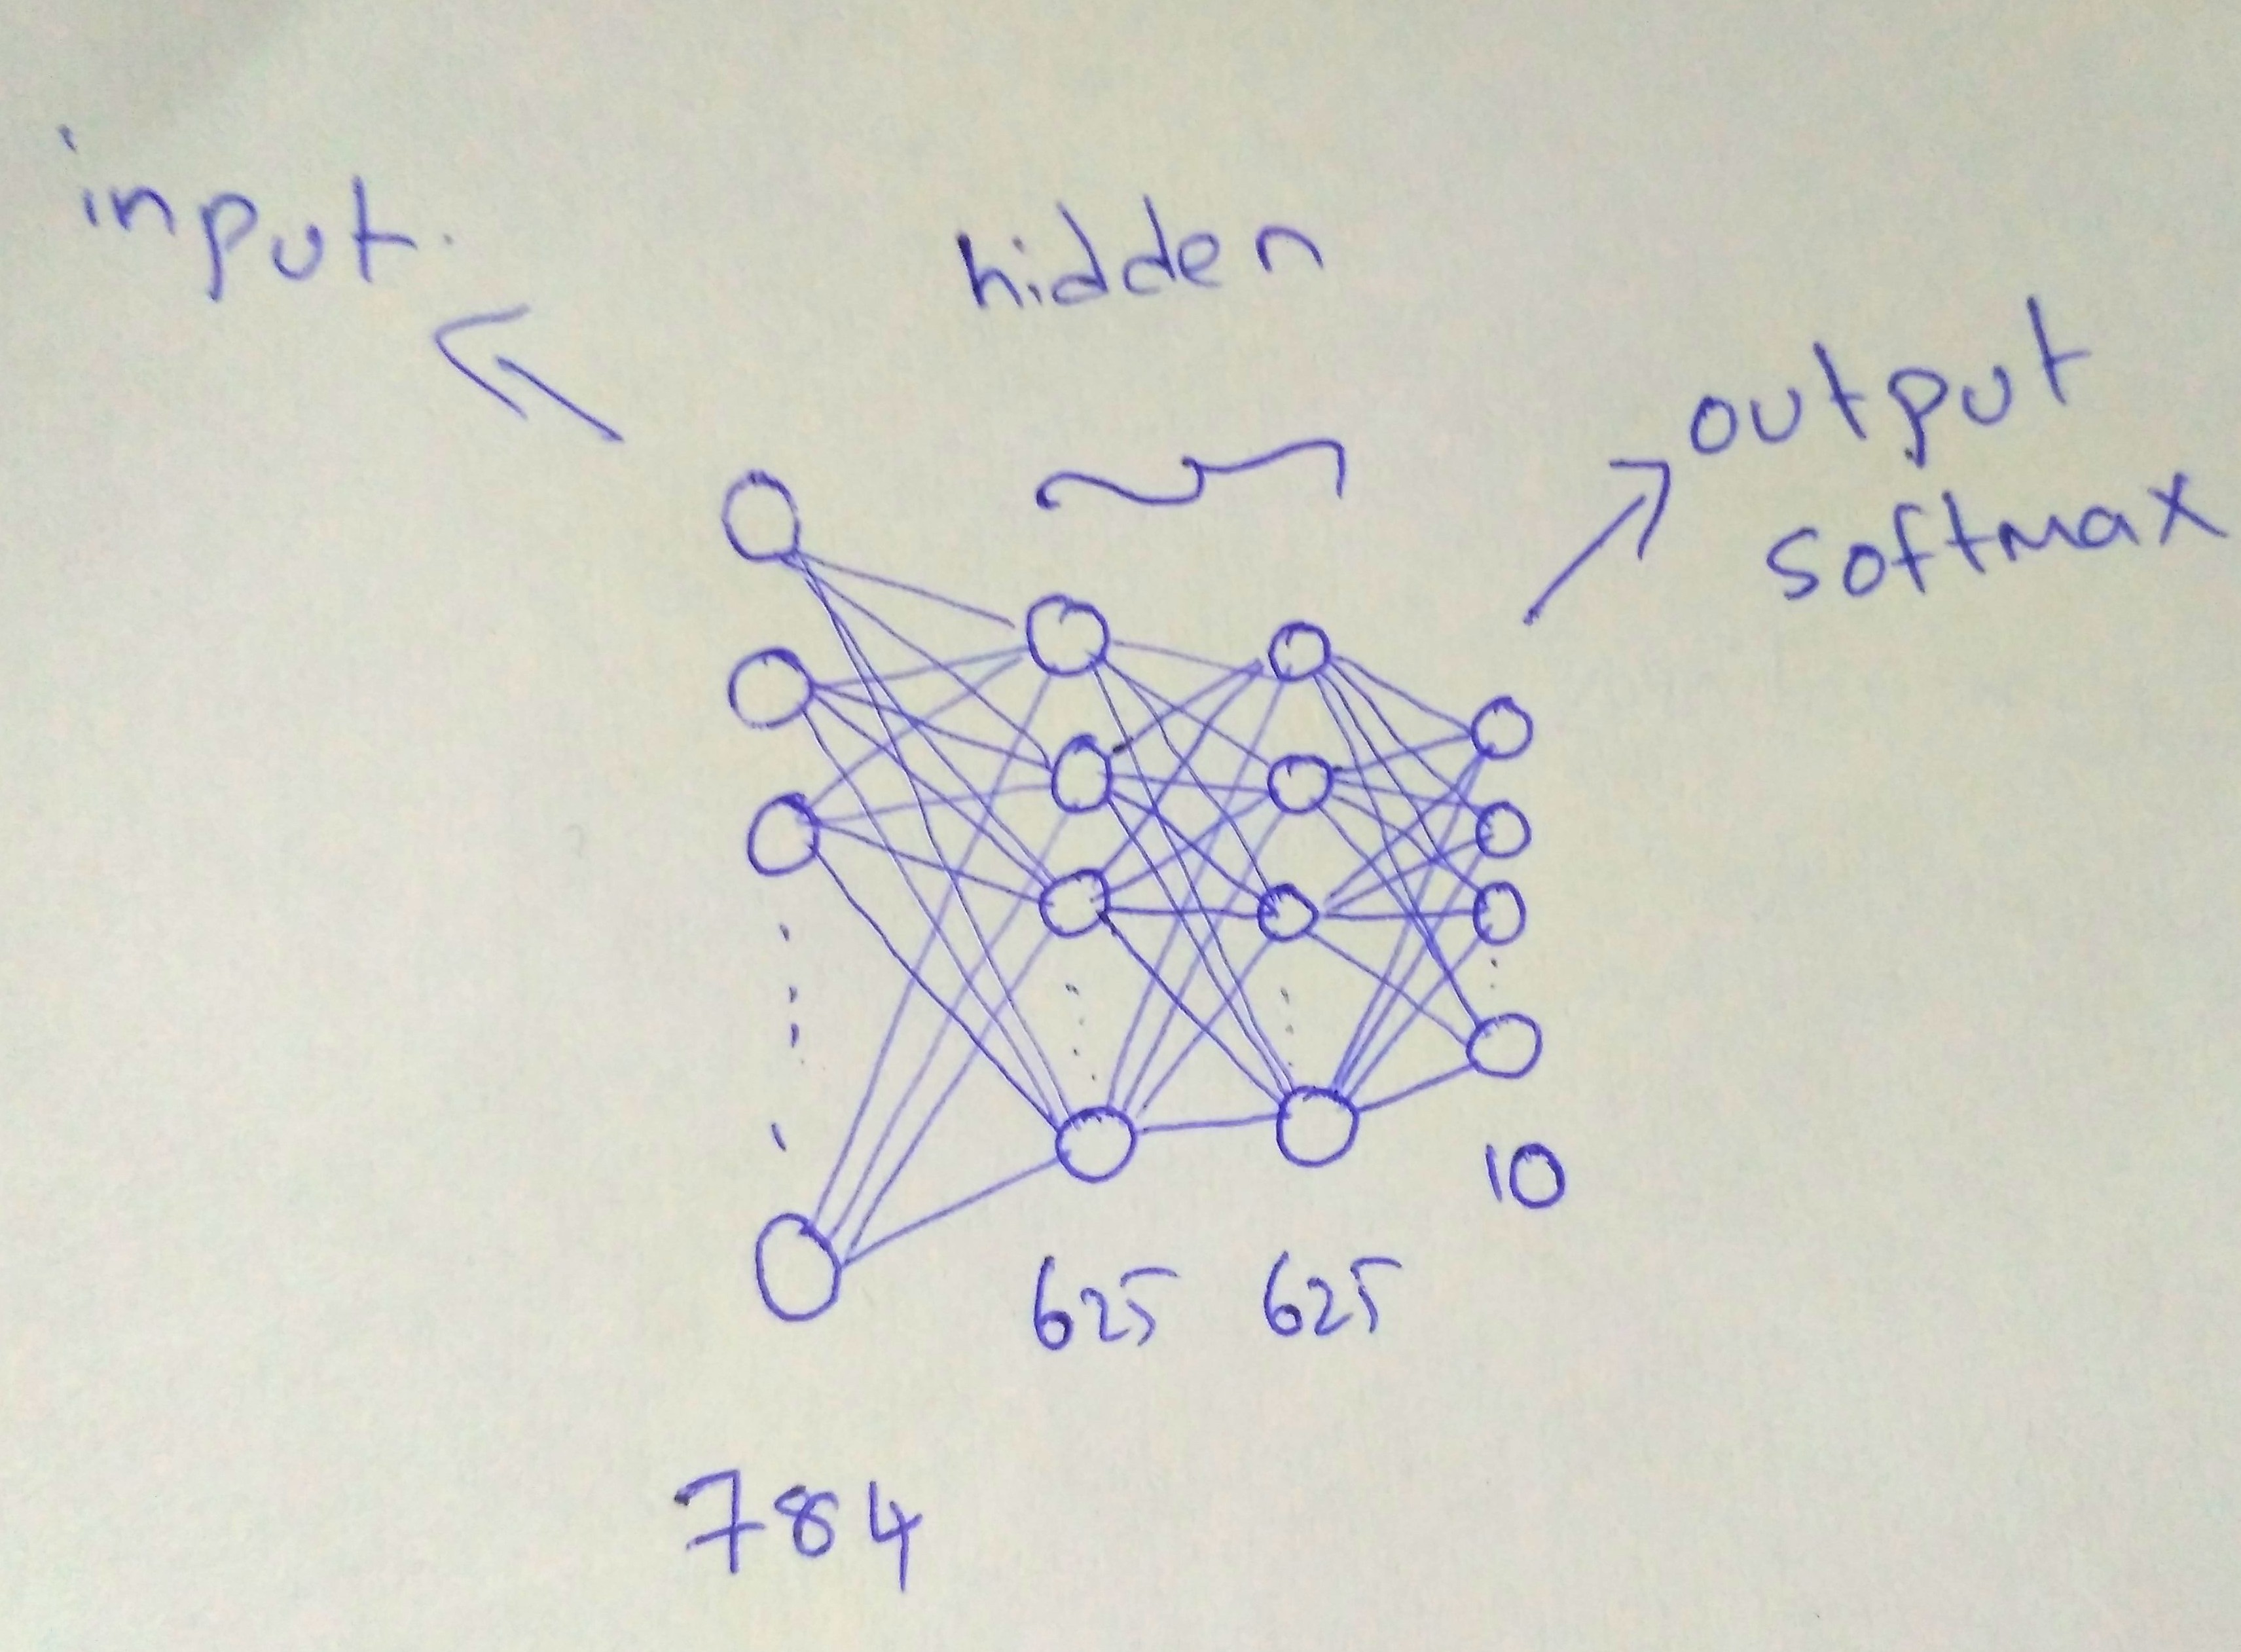 input
hidden
output
softmax
10
625 625
784